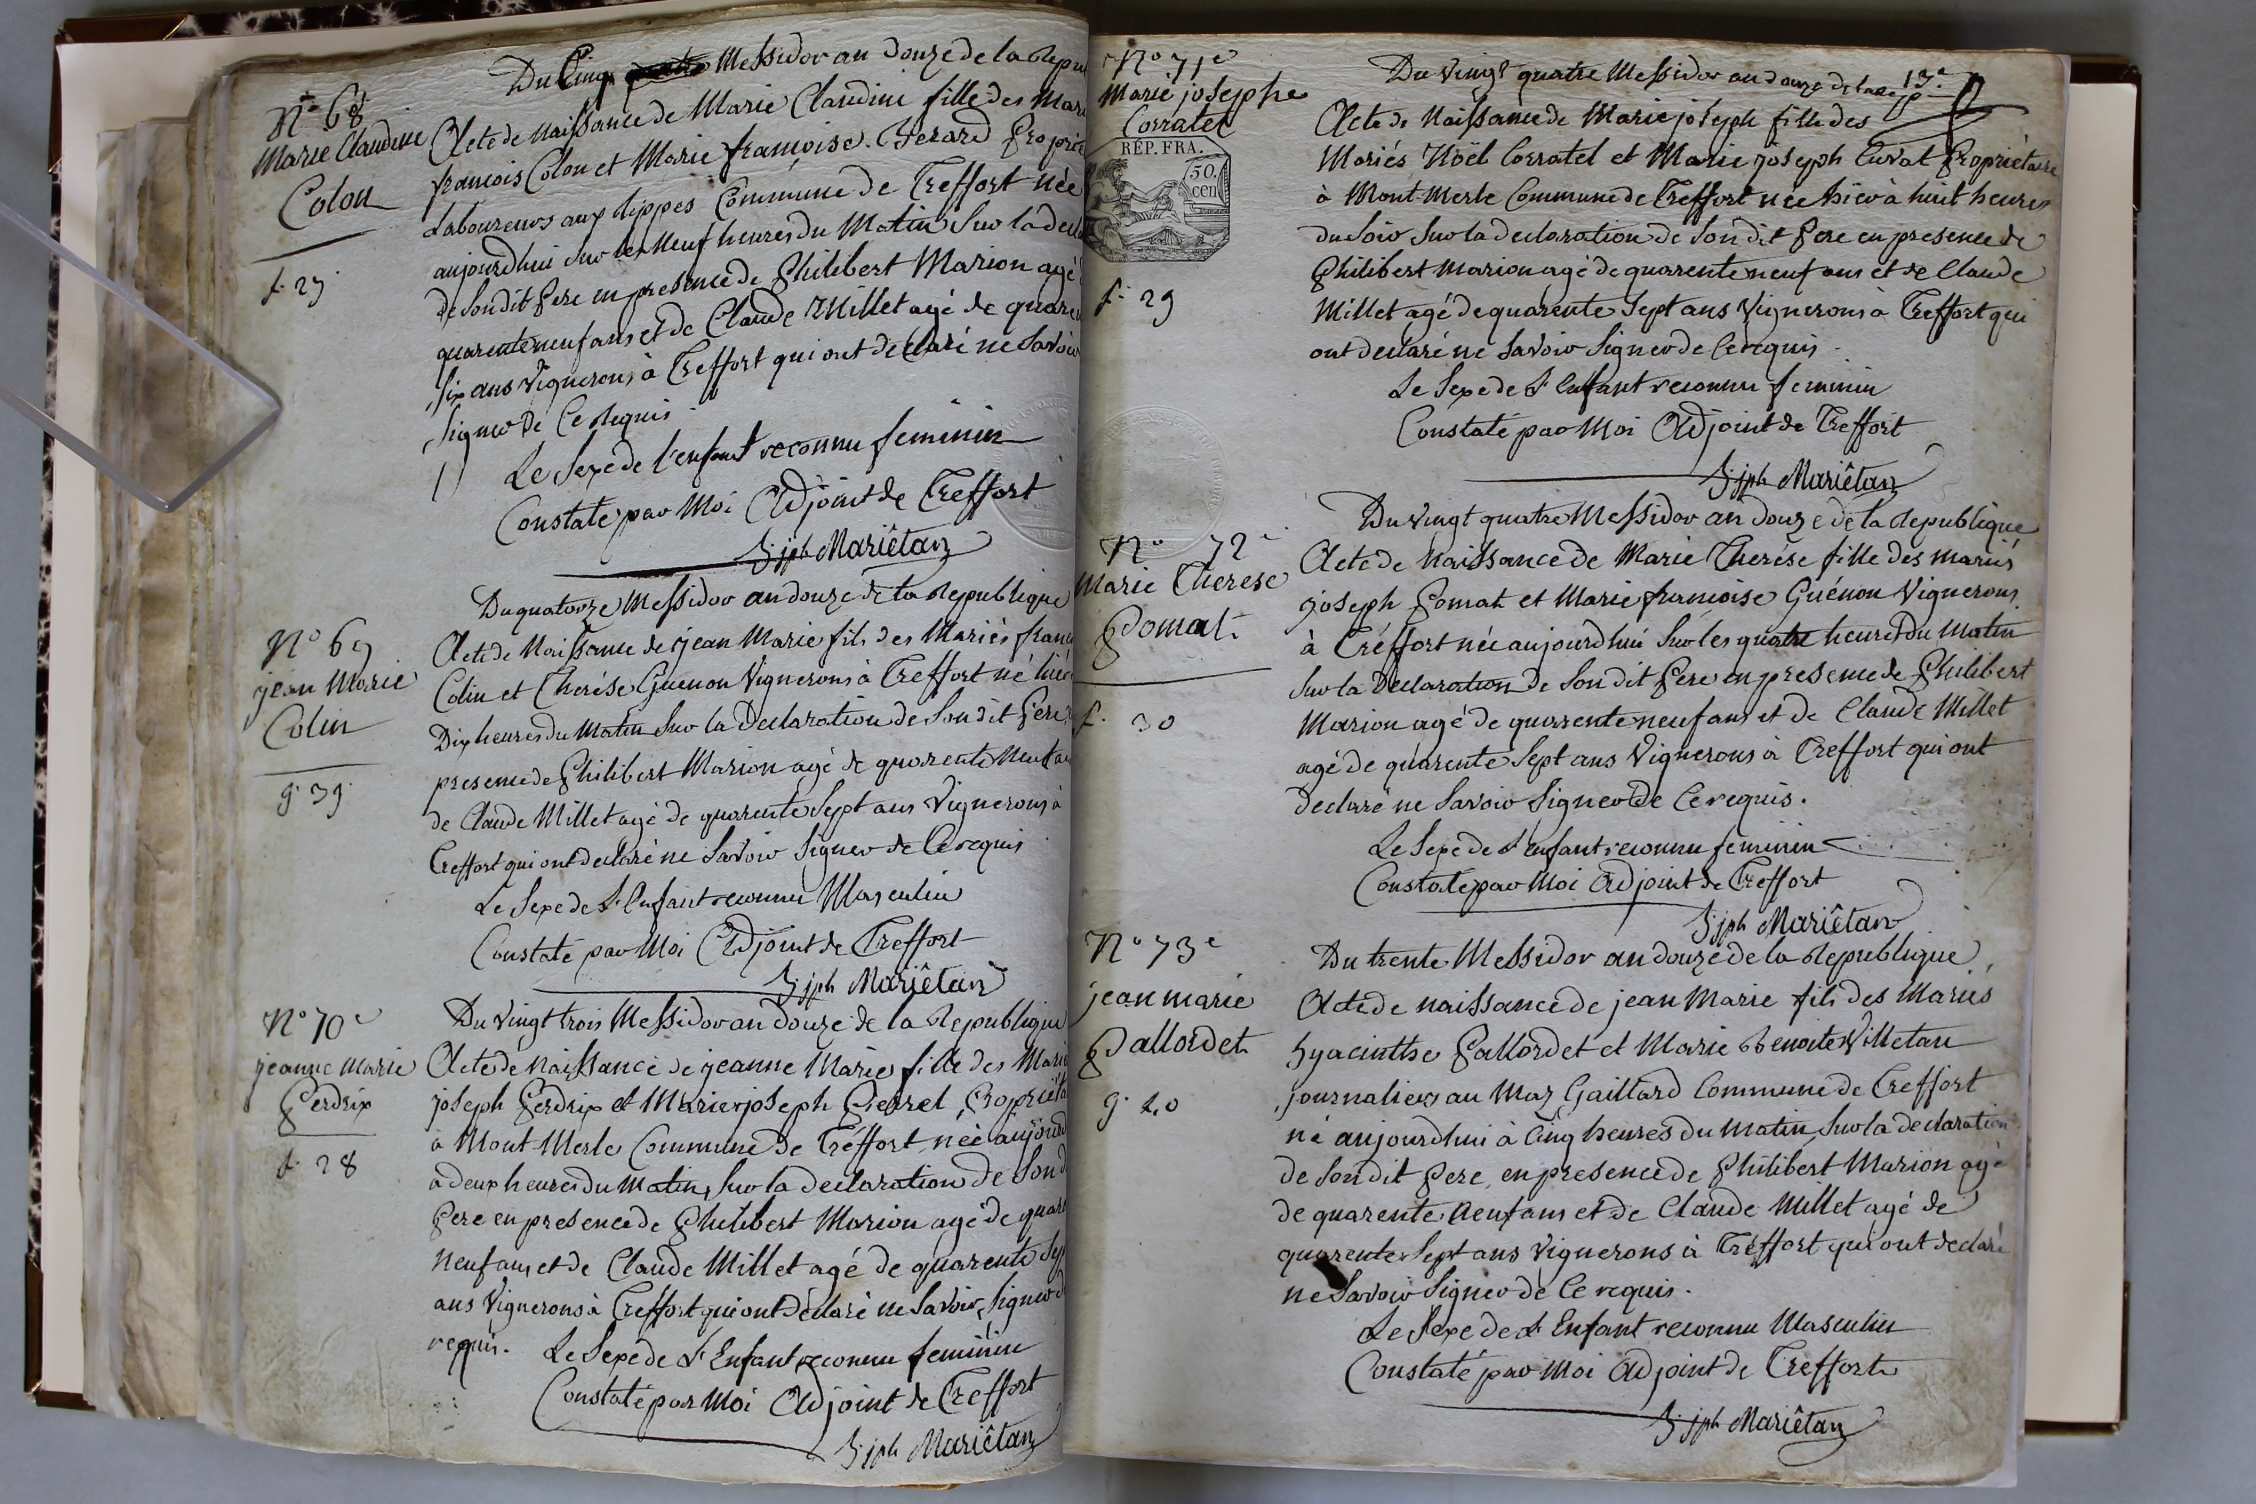 N° 68
Marie Claudine
Colon
f. 27
Du Cinq Messidor an douze de la Repu
Acte de Naissance de Marie Claudine fille des Mari
francois Colon et Marie francoise Gerard Proprie
Laboureurs aux Lippes Commune de Treffort née
aujourdhui sur les Neuf heures du Matin Sur la decla
de Son dit Pere en presence de Philibert Marion agé
quarente neuf ans et de Claude Millet agé de quaren
Six ans Vignerons à Treffort qui ont déclaré ne Savoir
Signer de Ce Requis
Le Sexe de l'enfant reconnu feminin
Constaté par Moi Adjoint de Treffort
J. jph Mariêtan
N° 69
jean Marie
Colin
g. 39.
Du quatorze Messidor an douze de la Republique
Acte de Naissance de jean Marie fils des Mariés franc
Colin et Therése Guenon Vignerons à Treffort né hier
Dix heures du Matin Sur la Declaration de Son dit Pere
presence de Philibert Marion agé de quarente Neuf an
de Claude Millet agé de quarente Sept ans Vignerons à
Treffort qui ont declaré ne Savoir Signer de Ce requis
Le Sexe de L'Enfant reconnu Masculin
Constaté par Moi Adjoint de Treffort
J. jph Mariêtan
N° 70e
jeanne Marie
Perdrix
f. 28
Du Vingt trois Messidor an douze de la Republique
Acte de Naissance de jeanne Marie fille des Marié
joseph Perdrix et Marie joseph Pierrel Proprieta
à Mont Merle Commune de Tréffort née aujourd
à deux heures du Matin Sur la declaration de Son d
Pere en presence de Philibert Marion agé de quare
Neuf ans et de Claude Millet agé de quarente Sep
ans Vignerons à Treffort qui ont déclaré ne Savoir Signer d
requis.
Le Sexe de L'Enfant reconnu feminin
Constaté par Moi Adjoint de Treffort
J. jph Mariêtan
N° 71e
Marie josephe
Corratel
RÉP. FRA.
50.
cen
f. 29
13e
Du Vingt quatre Messidor an douze de la Rep
Acte de Naissance de Marie joseph fille des
Mariés Noël Corratel et Marie joseph Curat Propriétaire
à Mont-Merle Commune de Treffort née hier à huit heures
du Soir Sur la declaration de Son dit Pere en presence de
Philibert Marion agé de quarente neuf ans et de Claude
Millet agé de quarente Sept ans Vignerons à Treffort qui
ont declaré ne Savoir Signer de Ce requis
Le Sexe de L'Enfant reconnu feminin
Constaté par Moi Adjoint de Treffort
J. jph Mariêtan
N° 72e
Marie Therese
Pomat
f. 30
Du Vingt quatre Messidor an douze de la Republique
Acte de Naissance de Marie Therése fille des mariés
joseph Pomat et Marie francoise Guénon Vignerons
à Tréffort née aujourdhui Sur les quatre heures du Matin
Sur la Declaration de Son dit Pere en presence de Philibert
Marion agé de quarente neuf ans et de Claude Millet
agé de quarente Sept ans Vignerons à Treffort qui ont
declaré ne Savoir Signer de Ce requis.
Le Sexe de L'enfant reconnu feminin
Constaté par Moi Adjoint de Treffort
J. jph Mariêtan
N° 73e
jean marie
Pallordet
g. 40
Du trente Messidor an douze de la Republique
Acte de naissance de jean Marie fils des Mariés
hyacinthe Pallordet et Marie Benoite Villetan
journaliers au Maz Gaillard Commune de Treffort
né aujourdhui à Cinq heures du matin Sur la declaration
de Son dit Pere en presence de Philibert Marion agé
de quarente Neuf ans et de Claude Millet agé de
quarente Sept ans Vignerons à Tréffort qui ont declaré
ne Savoir Signer de Ce requis.
Le Sexe de L'Enfant reconnu Masculin
Constaté par Moi Adjoint de Treffort
J. jph Mariêtan